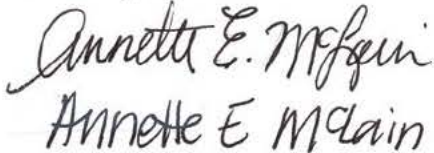 Annette E. McLain
Annette E McLain